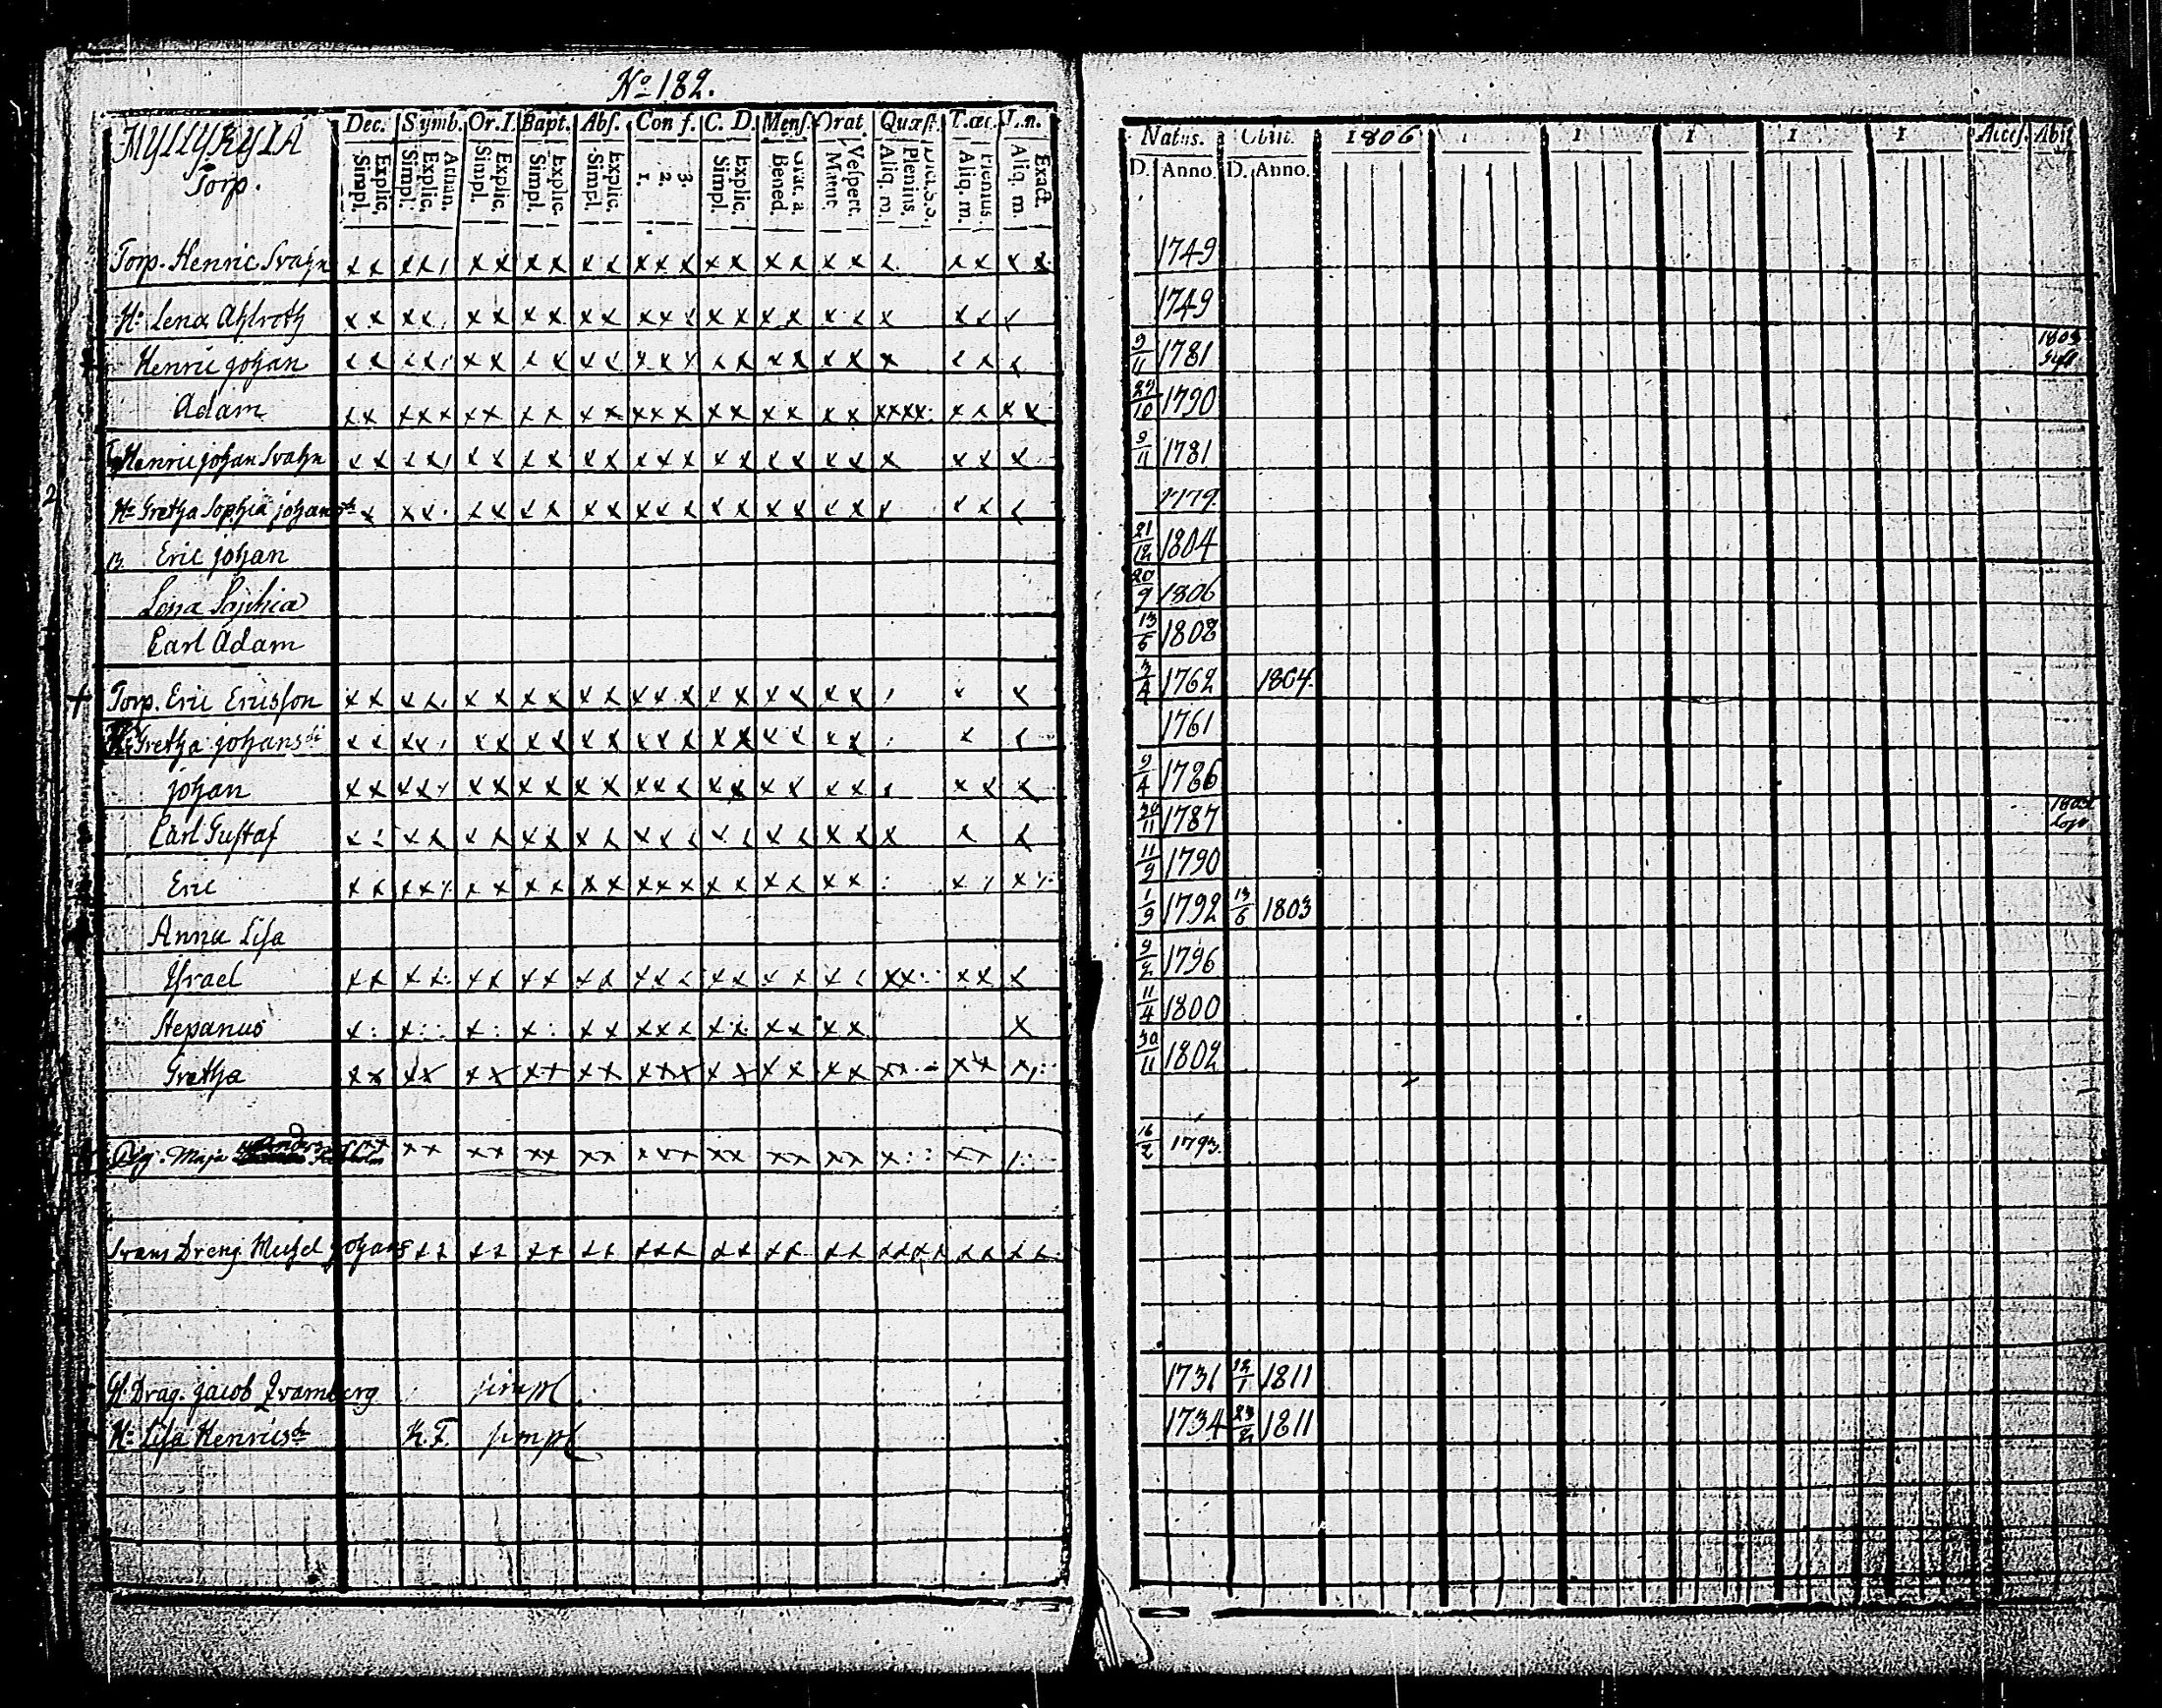 No 182.
MYLLYKYLÄ
Torp.
Dec. Symb. Or. I. Bapt. Abs. Conf. C. D. Mens. Orat. Quæst. T. œc. L.n.
Explic. Simpl. Athan. Explic. Simpl. Explic. Simpl. Explic. Simpl. Explic. Simpl. 3. 2. 1. Explic. Simpl. Grat. a. Bened. Vespert. Matut. Plenius. Aliq. m. Plenius. Aliq. m. Exact. Aliq. m.
Natus. Obiit. 1806 1 1 1 1 1 Access. Abit.
D. Anno. D. Anno.
Torp. Henric Svahn 1749
H: Lena Ahlroth 1749
Henric Johan 9/11 1781 1803
Adam 29/10 1790
Henric Johan Svahn 9/11 1781
2
H: Gretha Sophia Johansdr 1779
B. Eric Johan 21/12 1804
Lena Sophia 20/9 1806
Carl Adam 13/6 1808
+ Torp. Eric Ericsson 3/4 1762 1804.
H: Gretha Johansdr 1761
Johan 9/4 1786
Carl Gustaf 30/11 1787
Eric 11/9 1790
Anna Lisa 1/9 1792 13/6 1803
Israel 9/2 1796
Stepanus 11/4 1800
Gretha 30/11 1802
Pig. Maja 16/2 1793.
Svans Dreng Michel Johans
Gl. Drag. Jacob Qvamberg simpl. 1731 12/1 1811
H: Lisa Henricsdr K. F. simpl 1734 23/2 1811